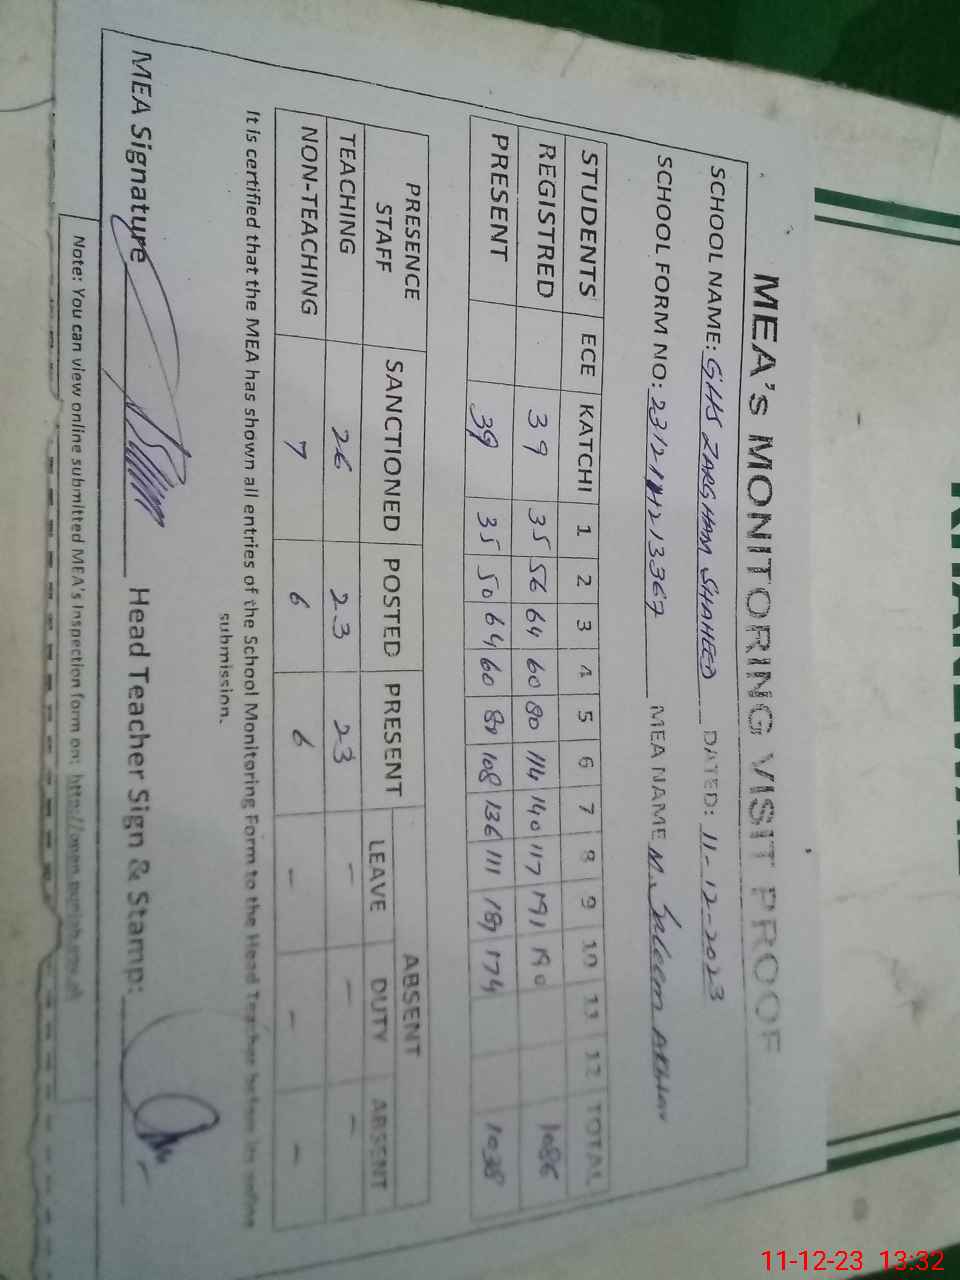 MEA's MONITORING VISIT PROOF
SCHOOL NAME: GHS ZARGHAM SHAHEED DATED: 11-12-2023
SCHOOL FORM NO: MEA NAME M. Saleem Akhtar
STUDENTS ECE KATCHI 1 2 3 4 5 6 7 8 9 10 11 12 TOTAL
REGISTRED 39 35 56 64 60 80 114 140 117 191 190 1086
PRESENT 39 35 50 64 60 108 136 111 174 1038
PRESENCE STAFF SANCTIONED POSTED PRESENT ABSENT
LEAVE DUTY ABSENT
TEACHING 26 23 23 - - -
NON-TEACHING 7 6 6 - - -
It is certified that the MEA has shown all entries of the School Monitoring Form to the Head Teacher before its online
submission.
MEA Signature Head Teacher Sign & Stamp:
Note: You can view online submitted MEA's Inspection form on: http://open.punjab.gov.pk
11-12-23 13:32